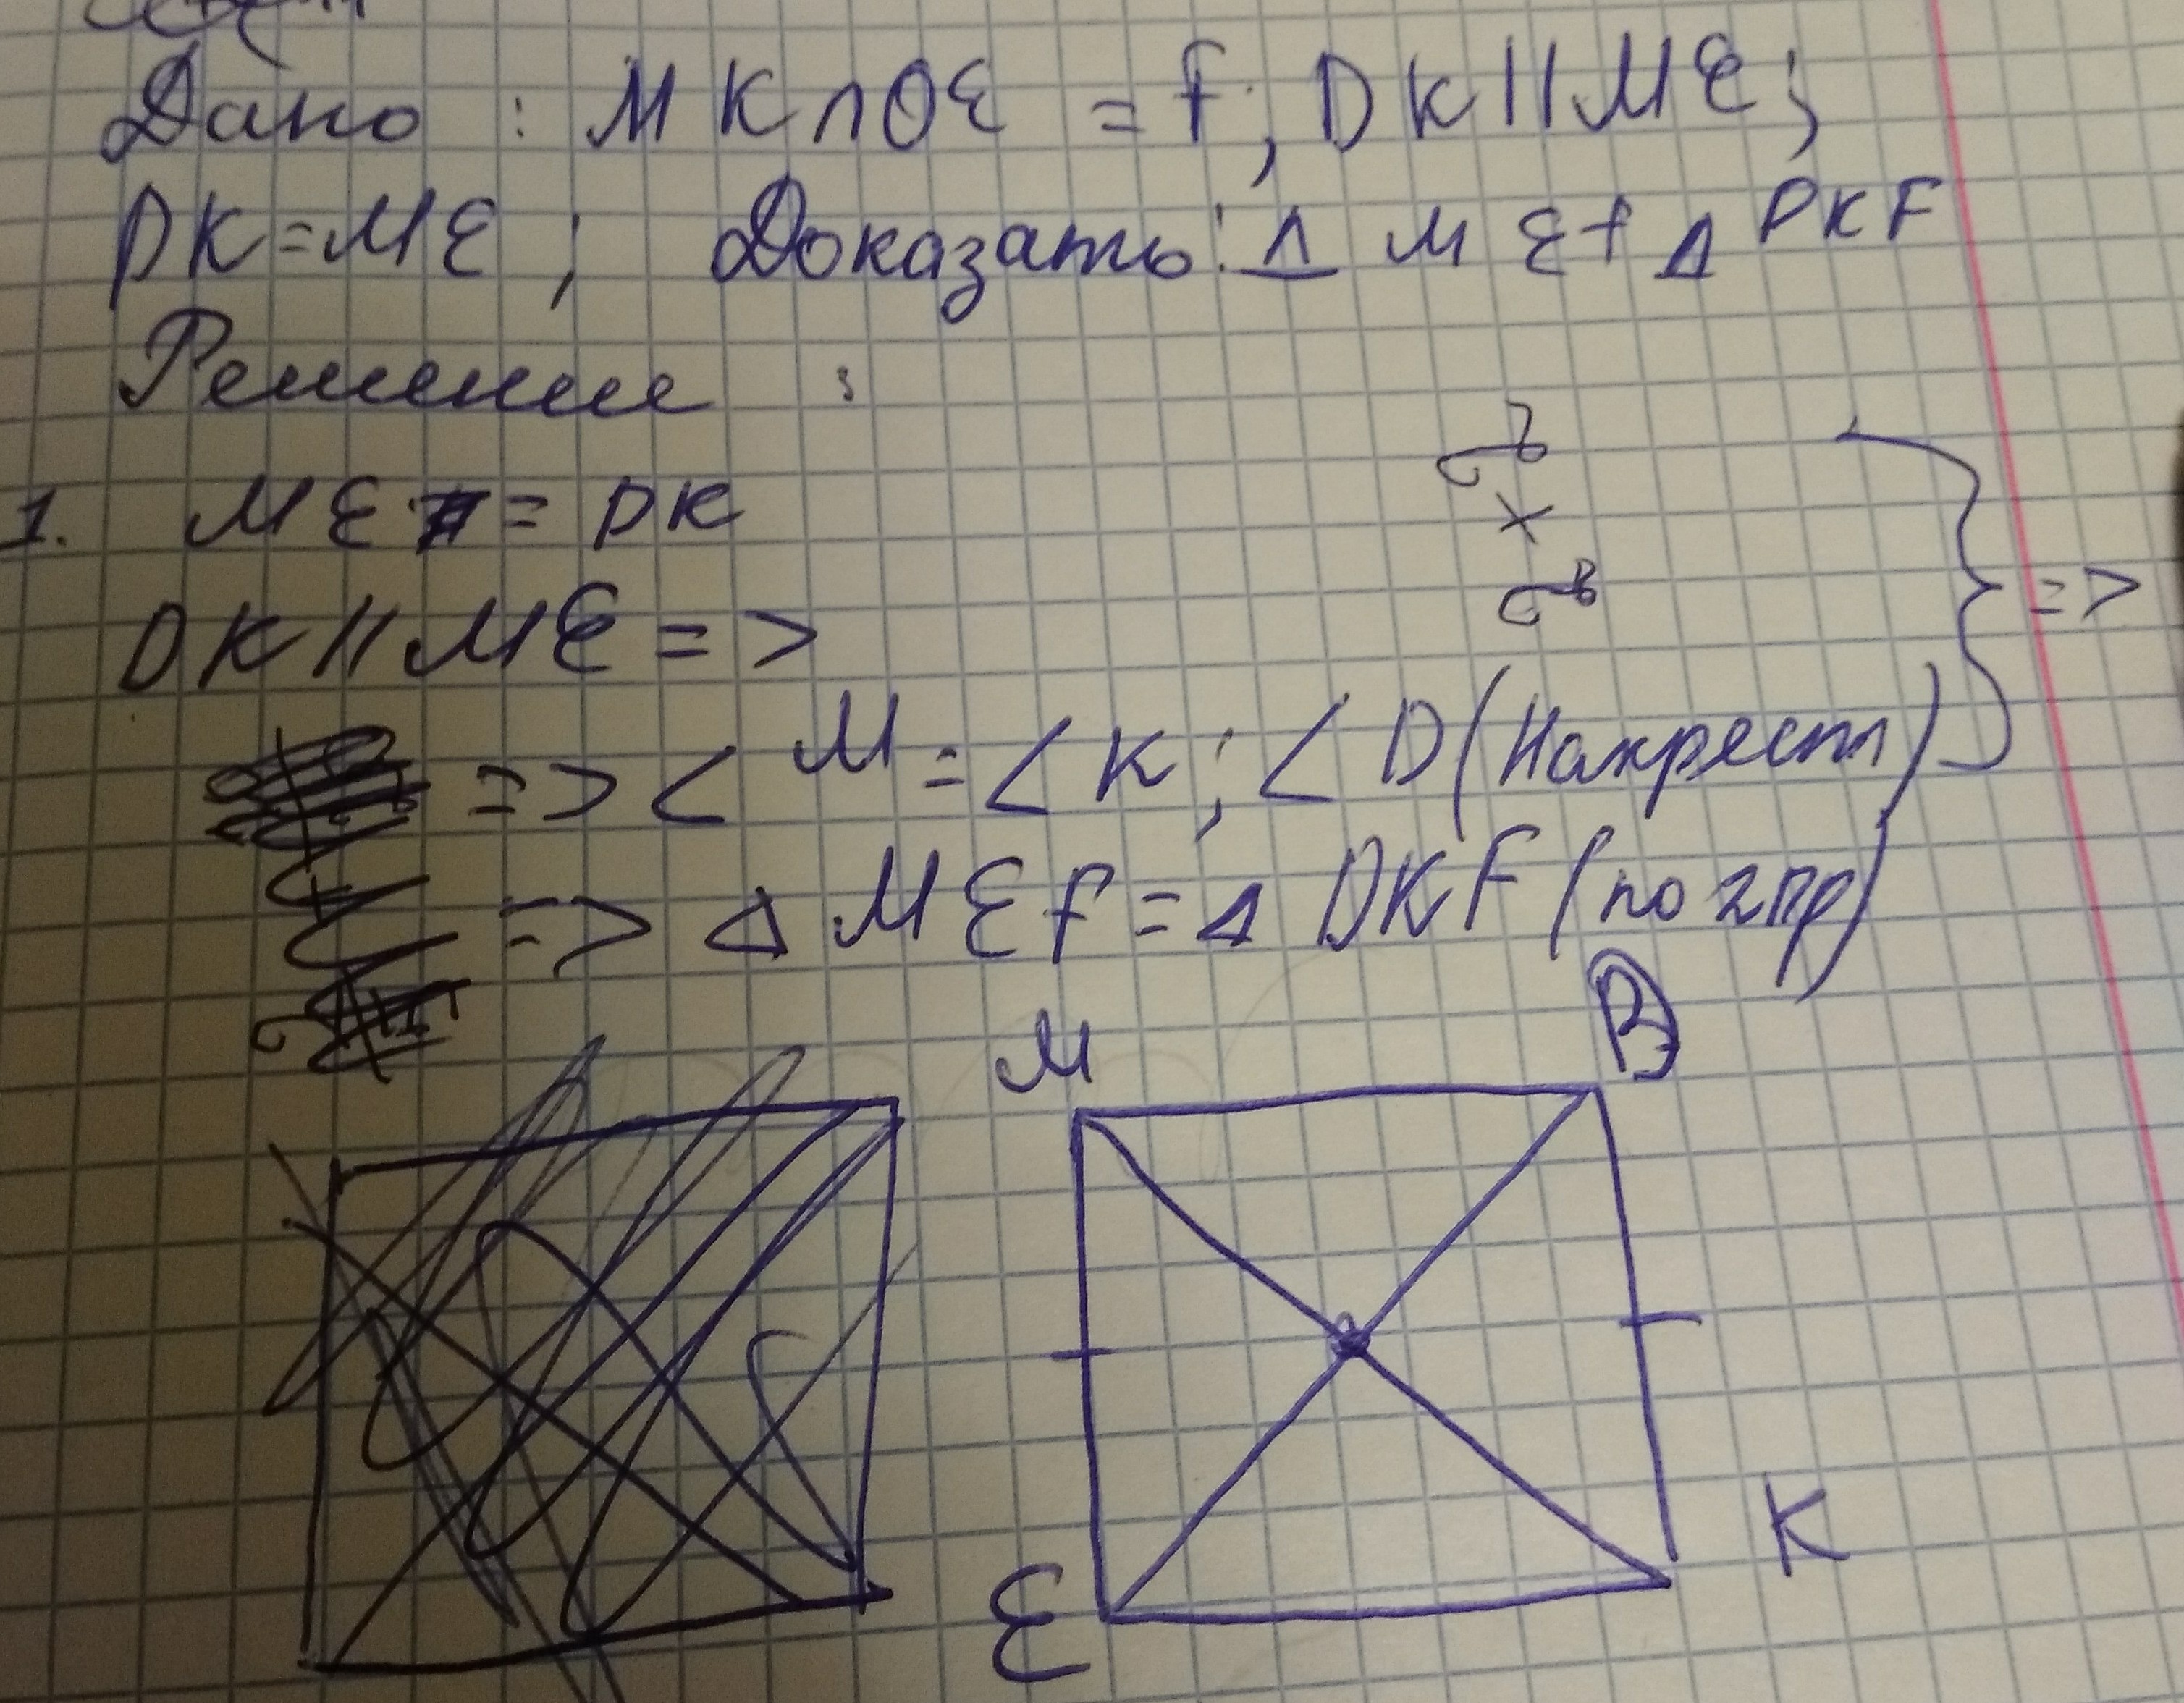 Дано : MK ∩ DE = F; DK || ME;
DK = ME ; Доказать: Δ MEF Δ DKF
Решение :
1. ME = DK
DK || ME =>
=>
=> < M = < K ; < D (Накрест)
=> Δ MEF = Δ DKF (по 2 пр)
M
E
K